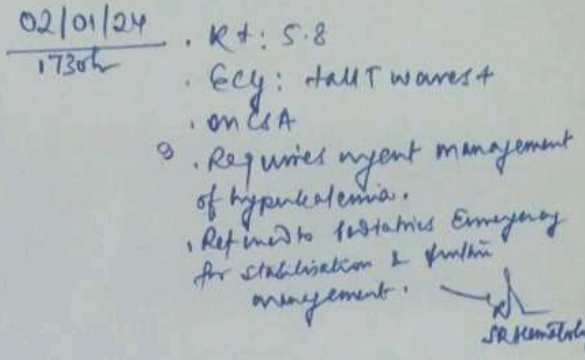 02/01/24
1730hr
. K+: 5.8
. ECG: tall T waves +
. on CsA
. Requires urgent management
of hyperkalemia.
. Referred to Pediatrics Emergency
for stabilisation & further
management.
SR Hematology